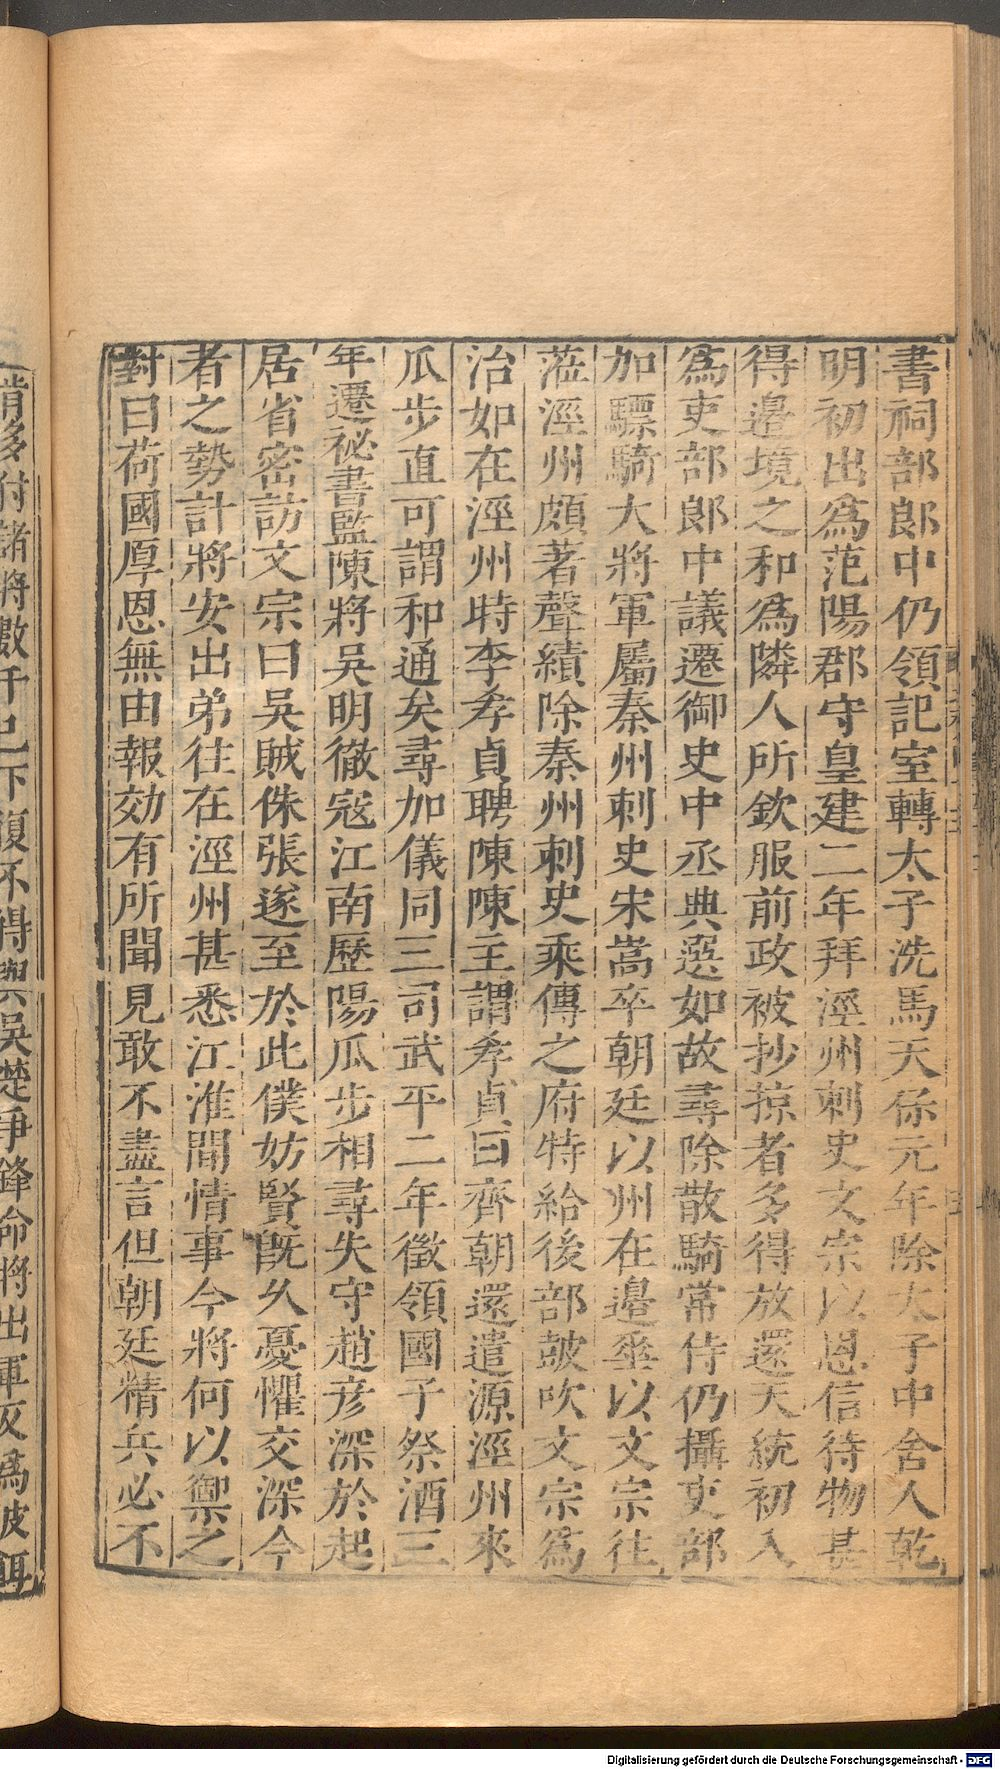 書祠部郎中仍領記室轉太子洗馬天保元年除太子中舍人乾
明初出爲范陽郡守皇建二年拜涇州刺史文宗以恩信待物甚
得邊境之和爲隣人所欽服前政被抄掠者多得放還天統初入
爲吏部郎中議遷御史中丞典選如故尋除散騎常侍仍攝吏部
加驃騎大將軍屬秦州刺史宋嵩卒朝廷以州在邊垂以文宗往
蒞涇州頗著聲績除秦州刺史乘傳之府特給後部皷吹文宗爲
治如在涇州時李孝貞聘陳陳主謂孝貞曰齊朝還遣源涇州來
瓜步直可謂和通矣尋加儀同三司武平二年徵領國子祭酒三
年遷祕書監陳將吳明徹寇江南歷陽瓜步相尋失守趙彦深於起
居省密訪文宗曰吳賊侏張遂至於此僕妨賢旣乆憂懼交深今
者之勢計將安出弟往在涇州甚悉江淮間情事今將何以禦之
對曰荷國厚恩無由報効有所聞見敢不盡言但朝廷精兵必不
肯多付諸將數千已下復不得與吳楚爭鋒命將出軍反爲彼餌
Digitalisierung gefördert durch die Deutsche Forschungsgemeinschaft - DFG